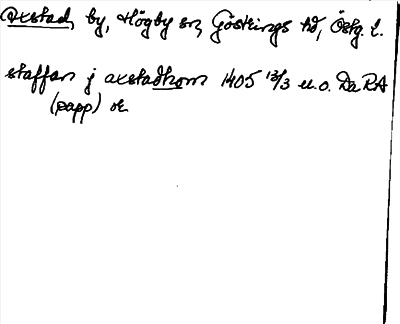 Axstad, by, Högby sn, Göstrings hd, Östg. l.
staffan j axstadhom 1405 13/3 u.o. Da RA
(papp) or.